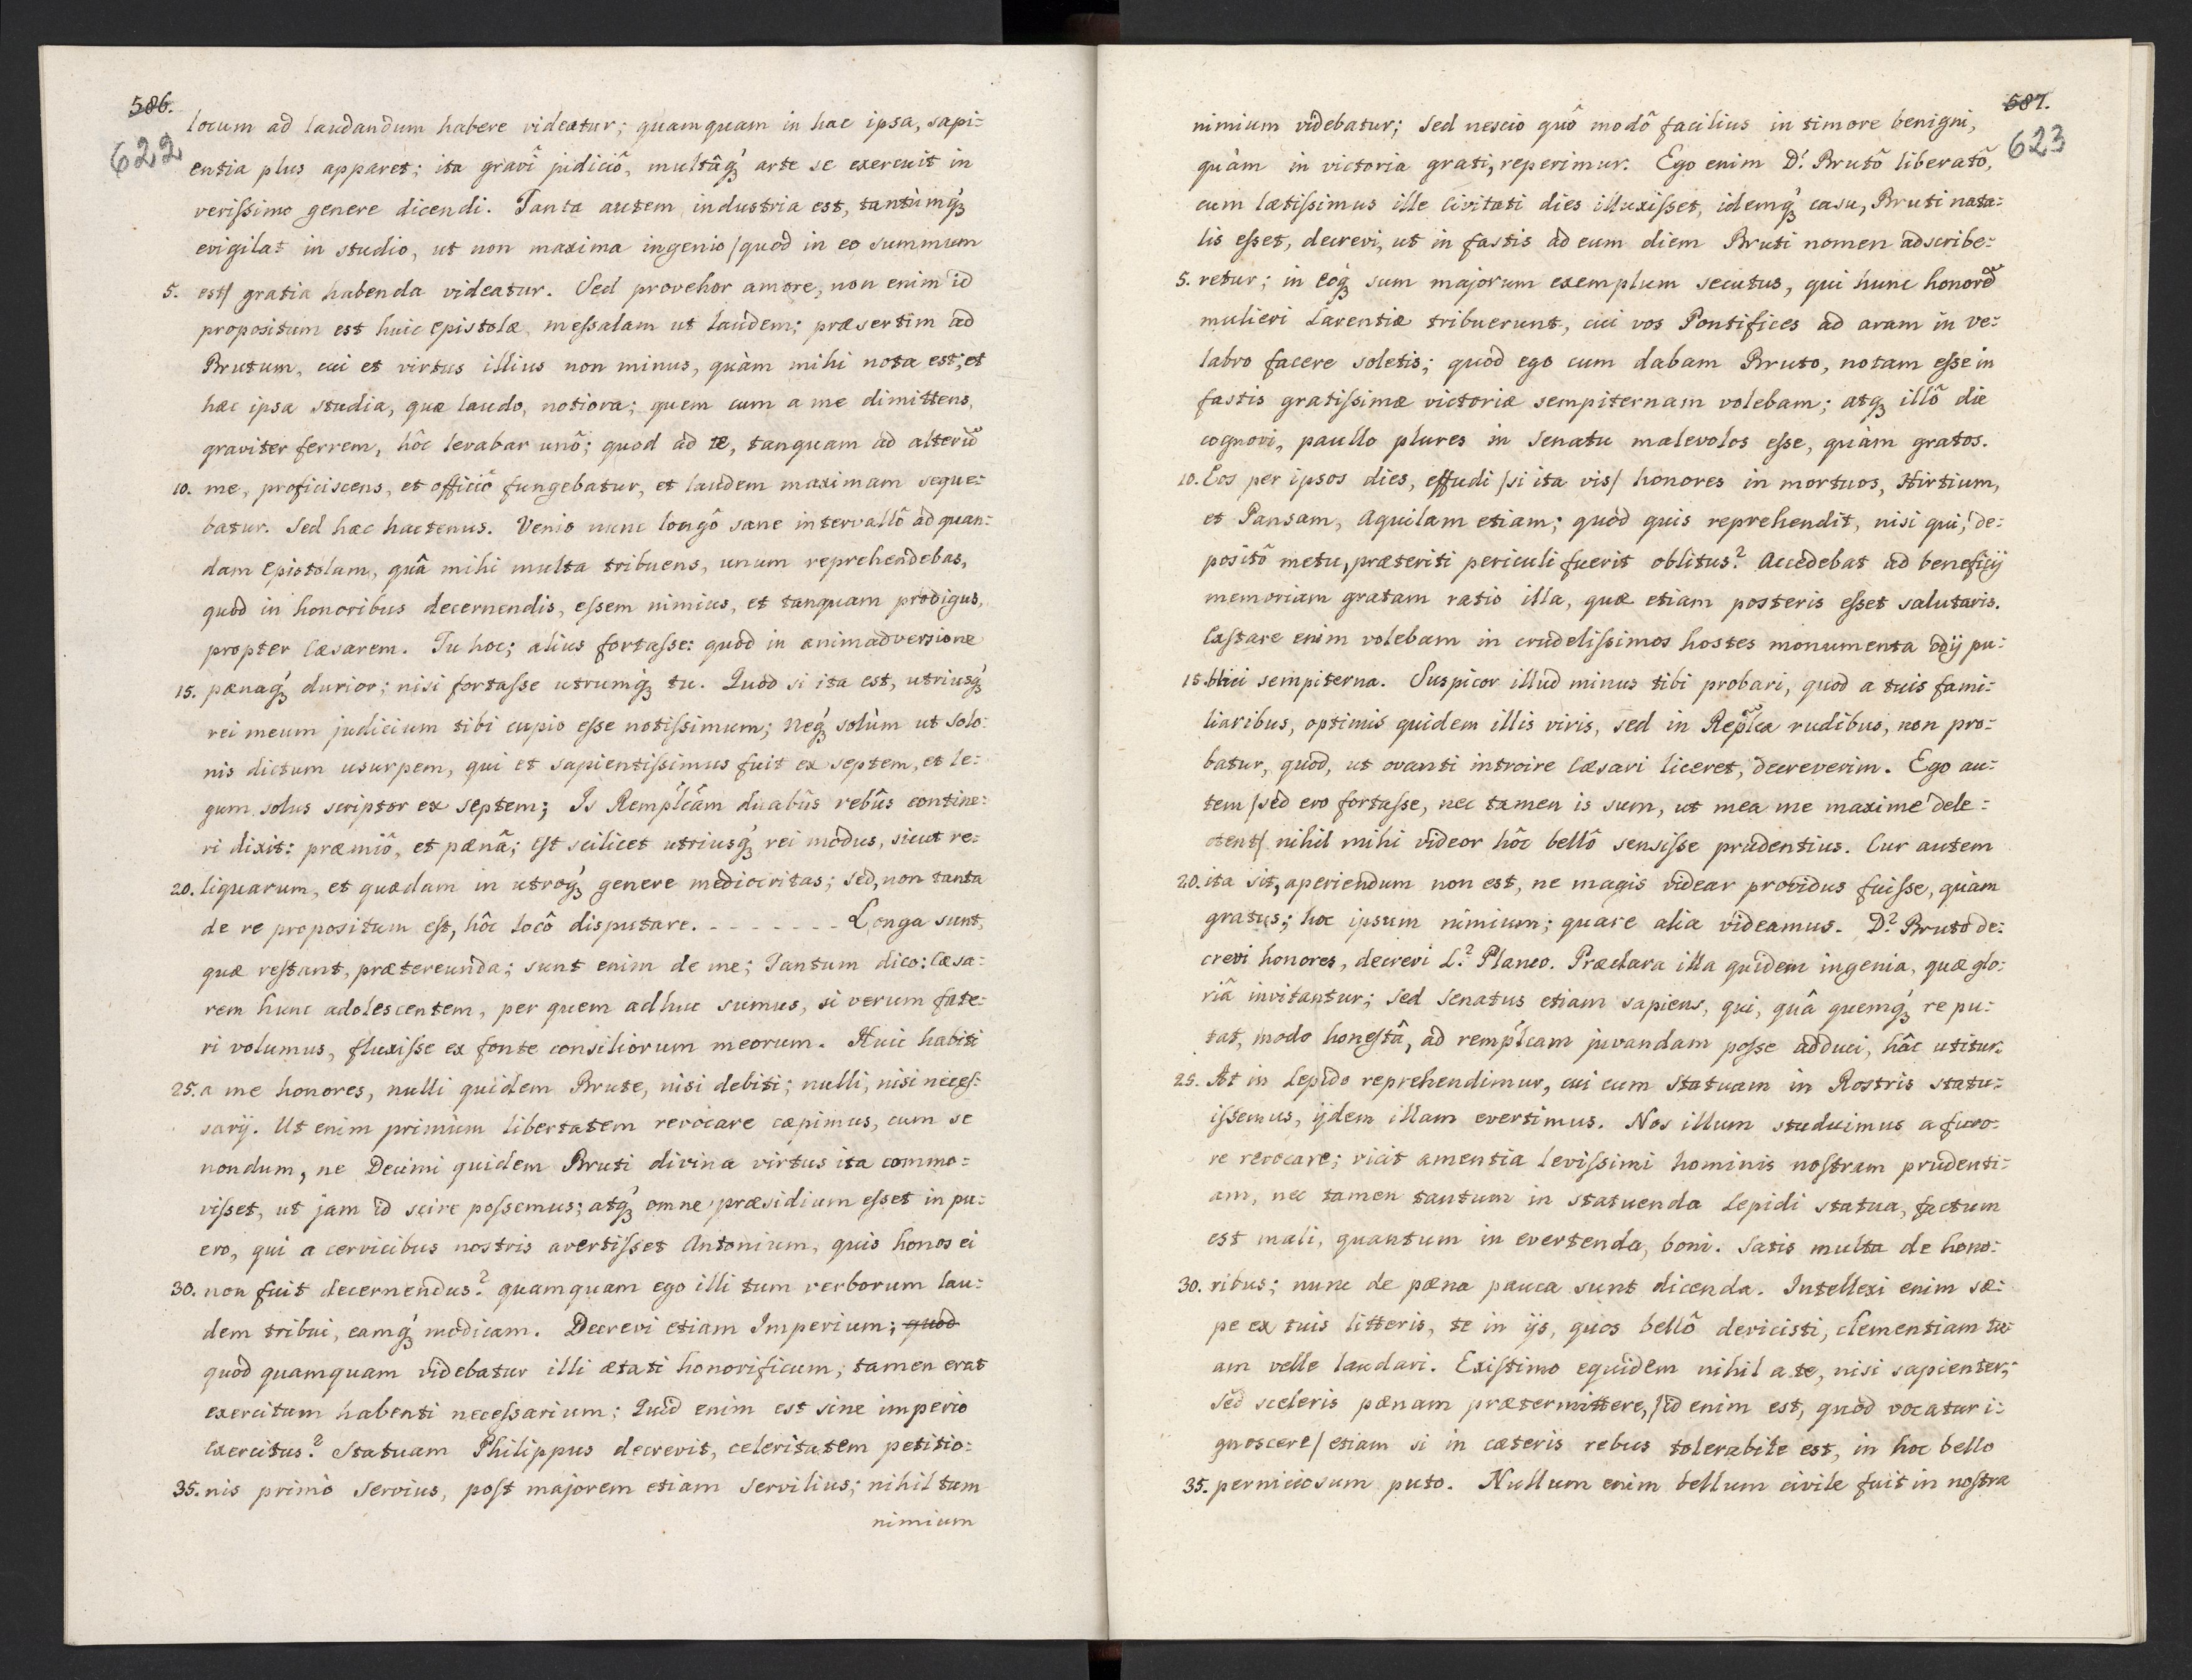 586.
622
locum ad laudandum habere videatur; quamquam in hac ipsa, sapi=
entia plus apparet; ita gravî judiciô, multâq́ꝫ arte se exercuit in
verißimo genere dicendi. Tanta autem industria est, tantùmq́ꝫ
evigilat in studio, ut non maxima ingenio /quod in eo summum
5. est/ gratia habenda videatur. Sed provehor amore, non enim id
propositum est huic epistolæ, meßalam ut laudem; præsertim ad
Brutum, cui et virtus illius non minus, quàm mihi nota est; et
hæc ipsa studia, quæ laudo, notiora; quem cum a me dimittens,
graviter ferrem, hôc levabar unô; quod ad te, tanquam ad alterũ
10. me, proficiscens, et officiô fungebatur, et laudem maximam seque=
batur. Sed hæc hactenus. Venio nunc longô sane intervallô ad quan=
dam epistolam, quâ mihi multa tribuens, unum reprehendebas,
quòd in honoribus decernendis, eßem nimius, et tanquam prodigus,
propter Cæsarem. Tu hoc; alius fortaße: quòd in animadversione
15. pænaq́ꝫ durior; nisi fortaße utrumq́ꝫ tu. Quòd si ita est, utriusq́ꝫ
rei meum judicium tibi cupio eße notißimum; neq́ꝫ solùm ut Solo=
nis dictum usurpem, qui et sapientißimus fuit ex septem, et le=
gum solus scriptor ex septem; Is Remp̃lcãm duabûs rebûs contine=
ri dixit: præmiô, et pænâ; est scilicet utriusq́ꝫ rei modus, sicut re=
20. liquarum, et quædam in utroq́ꝫ genere mediocritas; sed, non tanta
de re propositum est, hôc locô disputare. - - - - - - - Longa sunt,
quæ restant, prætereunda; sunt enim de me; Tantum dico: Cæsa=
rem hunc adolescentem, per quem adhuc sumus, si verum fate=
ri volumus, fluxiße ex fonte consiliorum meorum. Huic habiti
25. a me honores, nulli quidem Brute, nisi debiti; nulli, nisi neceß=
sarij. Ut enim primùm libertatem revocare cæpimus, cum se
nondum, ne Decimi quidem Bruti divina virtus ita commo=
vißet, ut jam id scire poßemus; atq́ꝫ omne præsidium eßet in pu=
ero, qui a cervicibus nostris avertißet Antonium, quis honos ei
30. non fuit decernendus? quamquam ego illi tum verborum lau=
dem tribui, eamq́ꝫ modicam. Decrevi etiam Imperium; quod
quod quamquam videbatur illi ætati honorificum, tamen erat
exercitum habenti neceßarium; Quid enim est sine imperio
exercitus? Statuam Philippus decrevit, celeritatem petitio=
35. nis primò Servius, post majorem etiam Servilius; nihil tum
nimium
587.
623
nimium videbatur; sed nescio quô modô facilius in timore benigni,
quàm in victoria grati, reperimur. Ego enim D. Brutô liberatô,
cum lætißimus ille civitati dies illuxißet, idemq́ꝫ casu, Bruti nata=
lis eßet, decrevi, ut in fastis ad eum diem Bruti nomen adscribe=
5. retur; in eoq́ꝫ sum majorum exemplum secutus, qui hunc honorẽ
mulieri Larentiæ tribuerunt, cui vos Pontifices ad aram in ve=
labro facere soletis; quod ego cum dabam Bruto, notam eße in
fastis gratißimæ victoriæ sempiternam volebam; atqꝫ illô die
cognovi, paullo plures in Senatu malevolos eße, quàm gratos.
10. Eos per ipsos dies, effudi /si ita vis/ honores in mortuos, Hirtium,
et Pansam, Aquilam etiam; quod quis reprehendit, nisi qui, de=
positô metu, præteriti periculi fuerit oblitus? Accedebat ad beneficij
memoriam gratam ratio illa, quæ etiam posteris eßet salutaris.
Exstare enim volebam in crudelißimos hostes monumenta odij pu=
15. blici sempiterna. Suspicor illud minus tibi probari, quod a tuis fami=
liaribus, optimis quidem illis viris, sed in Rep̃lca rudibus, non pro=
batur, quod, ut ovanti introire Cæsari liceret, decreverim. Ego au=
tem /sed ero fortaße, nec tamen is sum, ut mea me maxime dele=
ctent/ nihil mihi videor hôc bellô sensiße prudentius. Cur autem
20. ita sit, aperiendum non est, ne magis videar providus fuiße, quàm
gratus; hoc ipsum nimium; quare alia videamus. D. Bruto de=
crevi honores, decrevi L. Planco. Præclara illa quidem ingenia, quæ glo=
riâ invitantur; sed Senatus etiam sapiens, qui, quâ quemq́ꝫ re pu=
tat, modo honestâ, ad remp̃lcam juvandam poße adduci, hâc utitur.
25. At in Lepido reprehendimur, cui cum statuam in Rostris statu=
ißemus, ijdem illam evertimus. Nos illum studuimus a furo=
re revocare; vicit amentia levißimi hominis nostram prudenti=
am, nec tamen tantum in statuenda Lepidi statua, factum
est mali, quantum in evertenda, boni. Satis multa de hono=
30. ribus; nunc de pæna pauca sunt dicenda. Intellexi enim sæ=
pe ex tuis litteris, te in ijs, quos bellô devicisti, clementiam tu=
am velle laudari. Existimo equidem nihil a te, nisi sapienter;
sed sceleris pænam prætermittere, /id enim est, quod vocatur i=
gnoscere/ etiam si in cæteris rebus tolerabile est, in hoc bello
35. perniciosum puto. Nullum enim bellum civile fuit in nostra